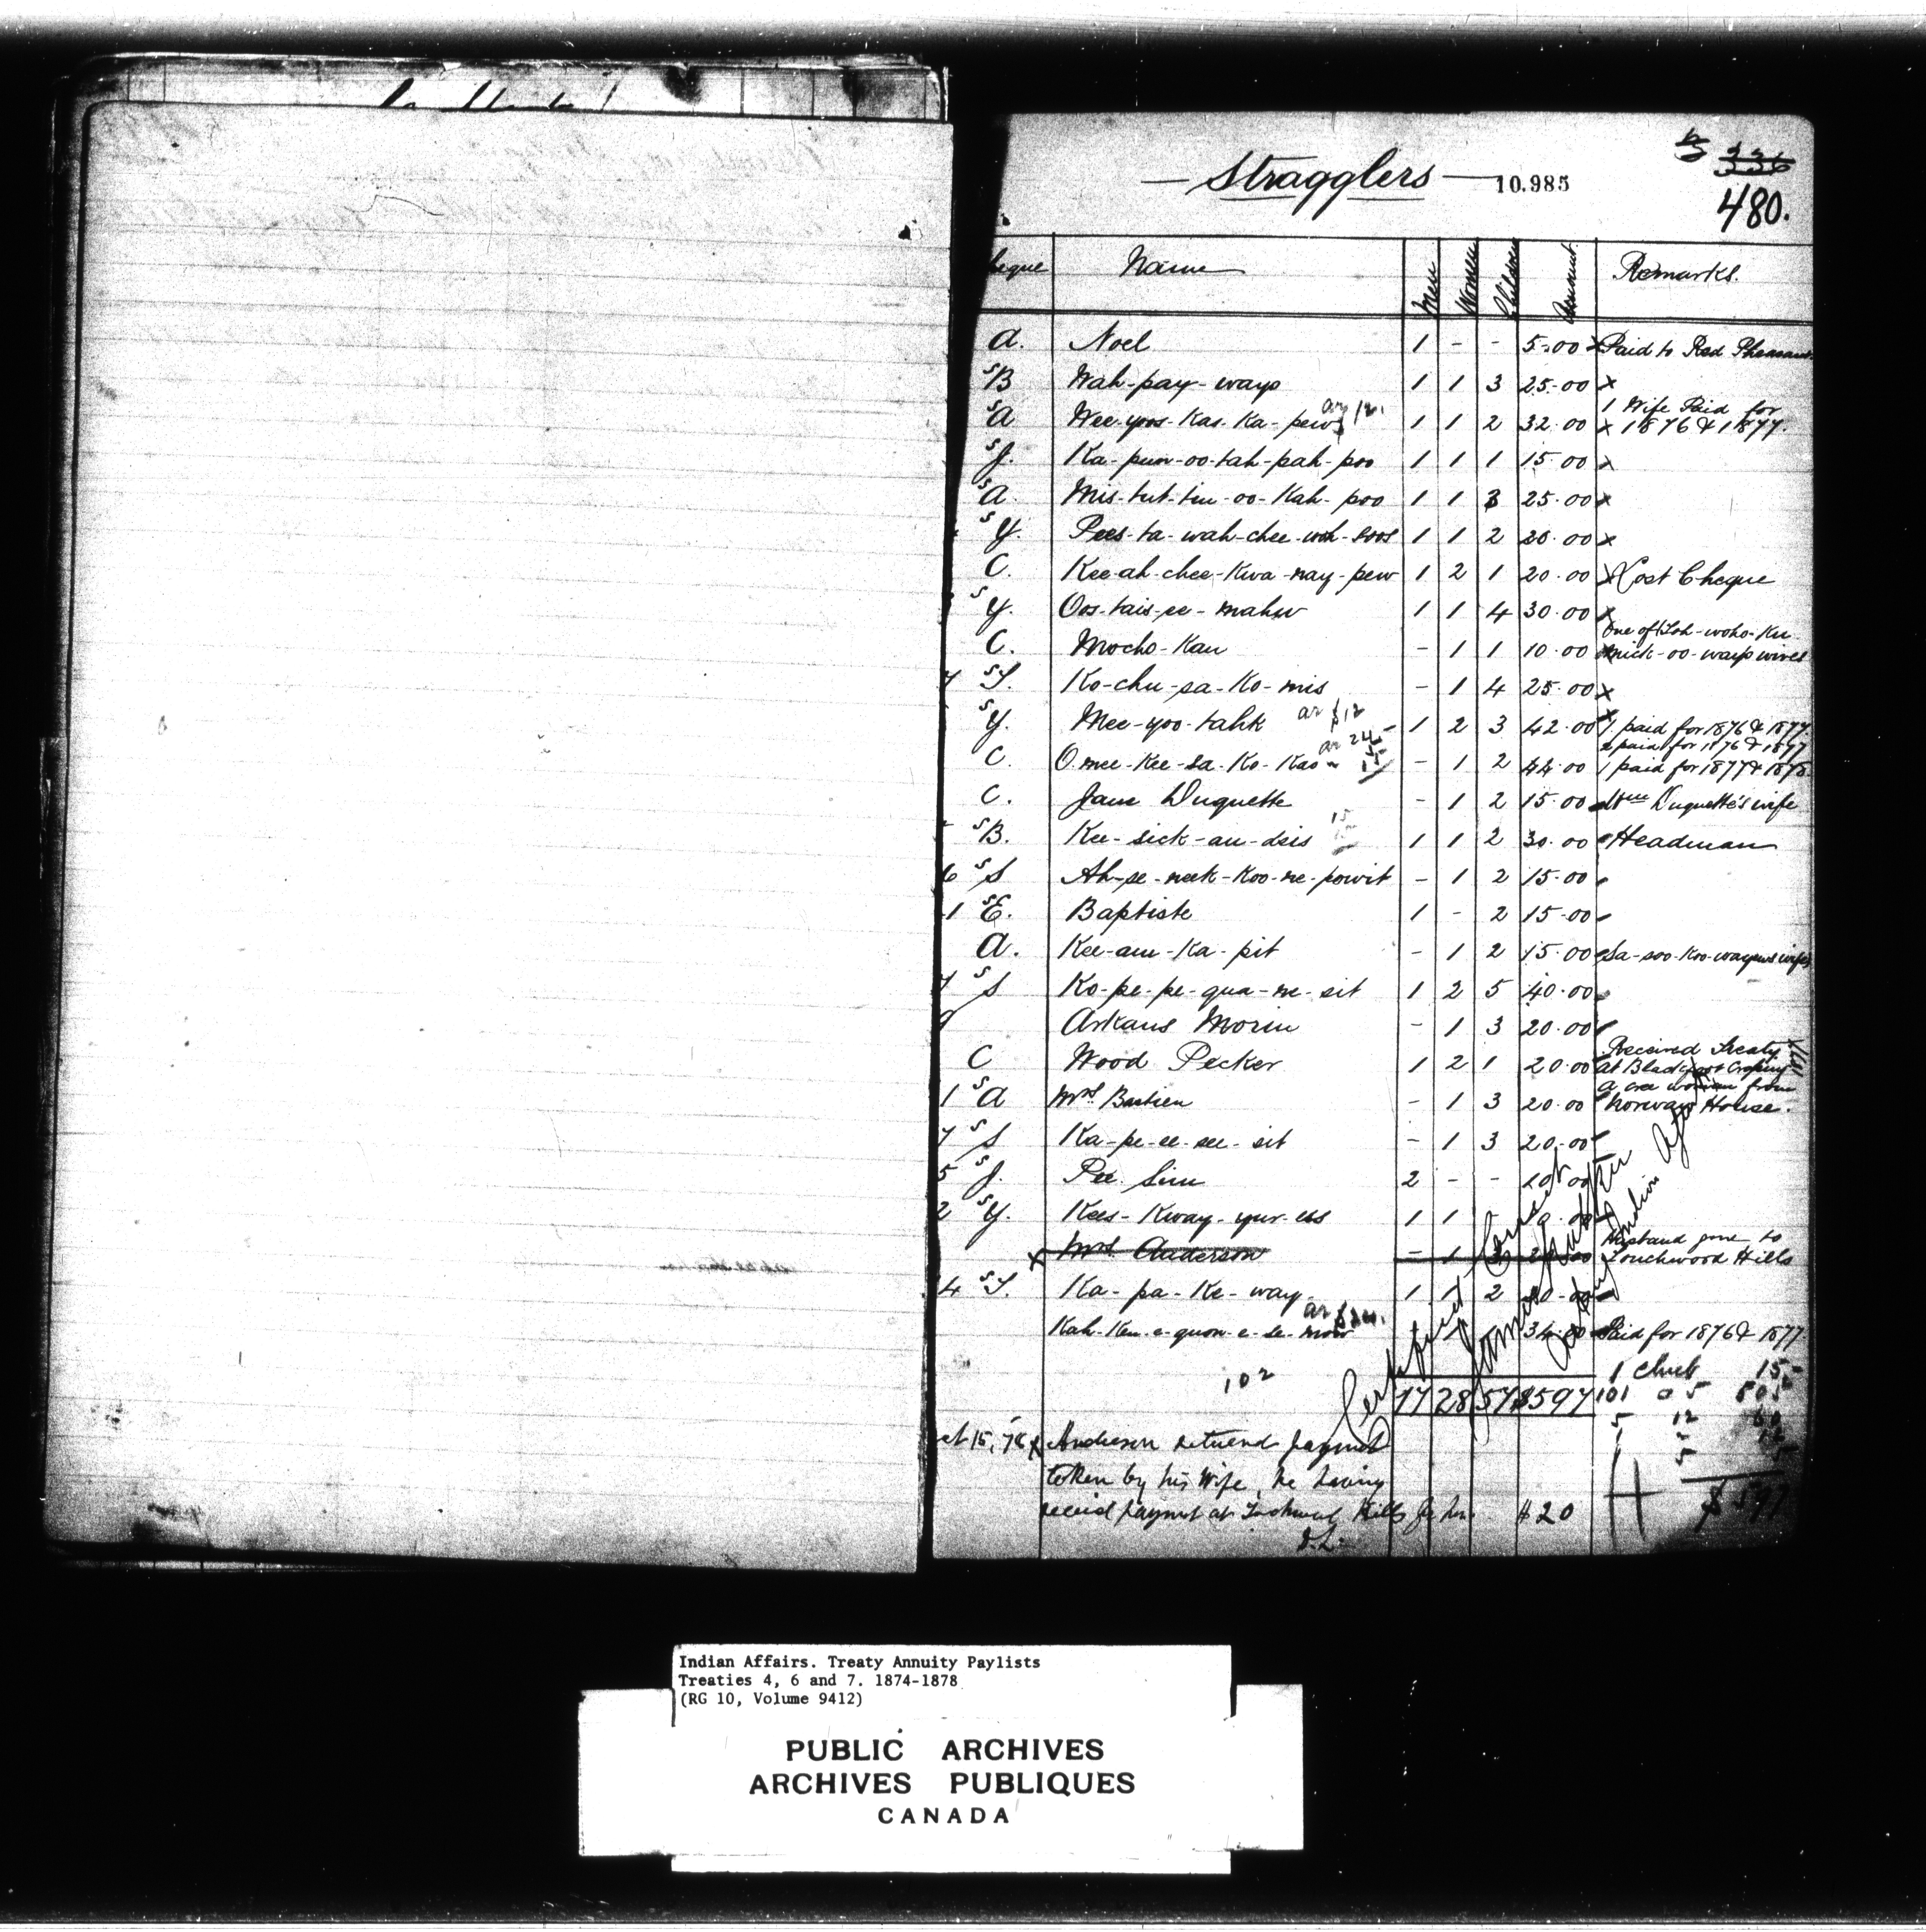 Stragglers
10.985
336
480.
Name Men Women Children Amount Remarks.
A. Noel 1 - - 5.00 x Paid to Red Pheasant
sB Wah-pay-ways 1 1 3 25.00 x
sA Wee-yoos-Kas-Ka-pew ar 12. 1 1 2 32.00 x 1 Wife Paid for 1876 & 1877.
sJ. Ka-pun-oo-tah-pah-poo 1 1 1 15.00 x
sA. Mis-tut-tin-oo-Kah-poo 1 1 3 25.00 x
sY. Pees-ta-wah-chee-wah-soos 1 1 2 20.00 x
C. Kee-ah-chee-Kwa-nay-pew 1 2 1 20.00 x Lost Cheque
sY. Oos-tais-ee-mahw 1 1 4 30.00 x
C. Mocho-Kan - 1 1 10.00 x One of Loh-woho-Ku-mick-oo-wayo wives
7 sT. Ko-chu-sa-Ko-mis - 1 4 25.00 x
sY. Mee-yoo-tahk ar $12 1 2 3 42.00 x 1 paid for 1876 & 1877.
C. O-mee-Kee-sa-Ko-Kas ar 24 15 - 1 2 44.00 2 paid for 1876 & 1877 1 paid for 1877 & 1878.
C. Jane Duquette - 1 2 15.00 Wm Duquette's wife
sB. Kee-sick-au-dsis 15 1 1 2 30.00 Headman
6 sS Ah-se-neek-Koo-ne-powit - 1 2 15.00
1 sE. Baptiste 1 - 2 15.00
A. Kee-am-Ka-pit - 1 2 15.00 Sa-soo-Koo-wayews wife
7 sS Ko-pe-pe-qua-ne-sit 1 2 5 40.00
9 Arkans Morin - 1 3 20.00
C Wood Pecker 1 2 1 20.00 Received Treaty at Blackfoot Crossing 1877
1 sA Mrs. Bastien - 1 3 20.00 A cree woman from Norway House.
7 sS Ka-pe-ee-see-sit - 1 3 20.00
5 sJ. Pee Sim 2 - - 10.00
2 sY. Kees-Kway-yur-ess 1 1
x Mrs. Anderson - 1 3 20.00 Husband gone to Touchwood Hills
4 sT. Ka-pa-Ke-way 1 1 2 20.00
Kah-Ken-e-quon-e-se-mow ar $24. 34.00 Paid for 1876 & 1877
Certified Correct
James Walker
Acting Indian Agent
102
17 28 57 $597
1 Chief 15
101 @ 5 505
5 12 60
$ 597
Oct 15, 78 x Anderson returned payment
taken by his Wife, he having
received payment at Touchwood Hills for her. $20
D.L.
Indian Affairs. Treaty Annuity Paylists
Treaties 4, 6 and 7. 1874-1878
(RG 10, Volume 9412)
PUBLIC ARCHIVES
ARCHIVES PUBLIQUES
CANADA